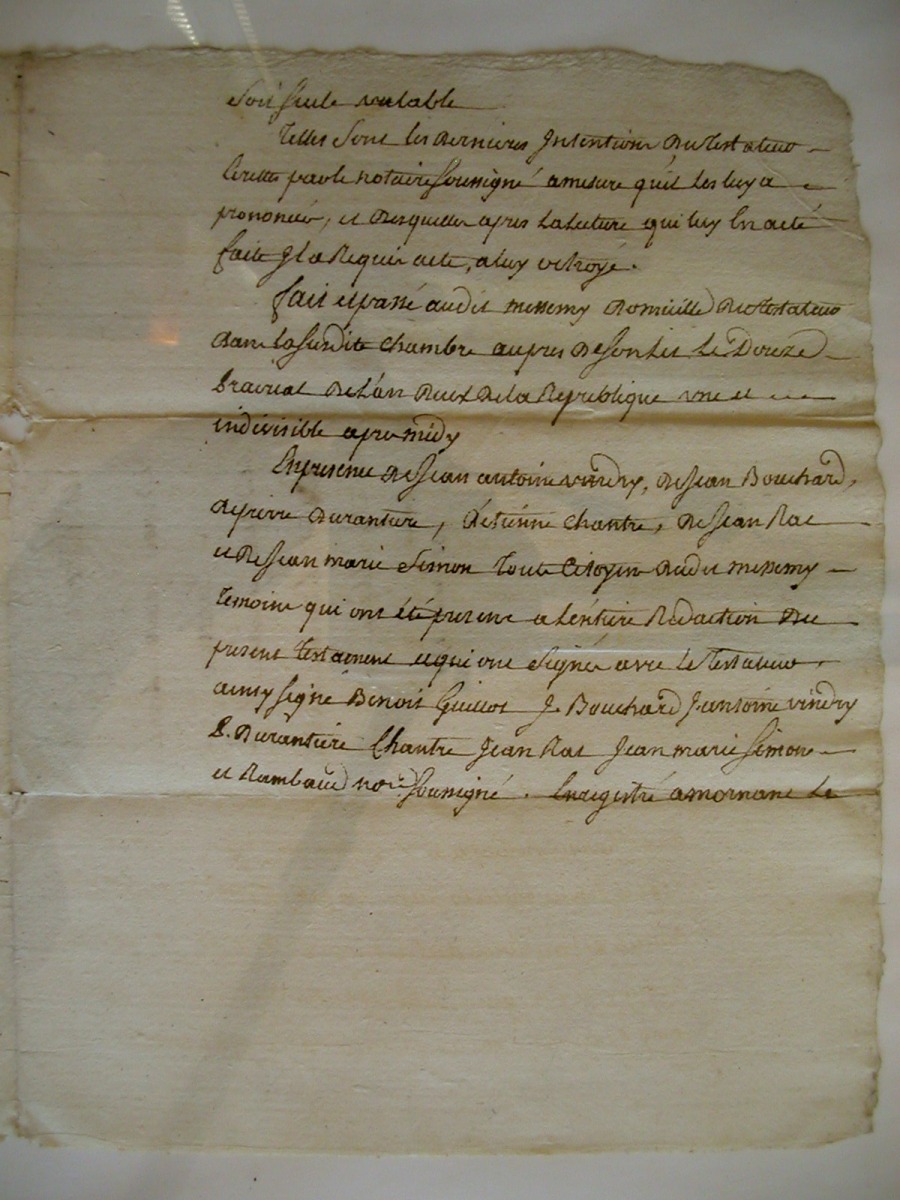 soit seule valable
Telles sont les dernieres Intentions du testateur
Ecrittes par le notaire soussigné a mesure qu'il les luy a
prononcées, et desquelles apres la lecture qui luy en a eté
faite Il a Requis acte, a luy octroyé.
fait et passé audit messimy domicille du testateur
dans la susdite chambre aupres de son lit le Douze
prairial de L'an deux de la Republique une et
indivisible apres midy
En presence de Jean antoine vindry, de Jean Bouchard,
de pierre Durantiere, d'etienne chantre, de Jean Rat
et de Jean marie Simon tous Citoyens dudit messimy
temoins qui ont été presens a L'entiere Rédaction du
present testament et qui ont signés avec le testateur,
ainsy signé Benoit Guillot J. Bouchard J. antoine vindry
P. Durantiere Chantre Jean Rat Jean marie Simon
et Rambaud nore. soussigné. Enregistré a mornant le